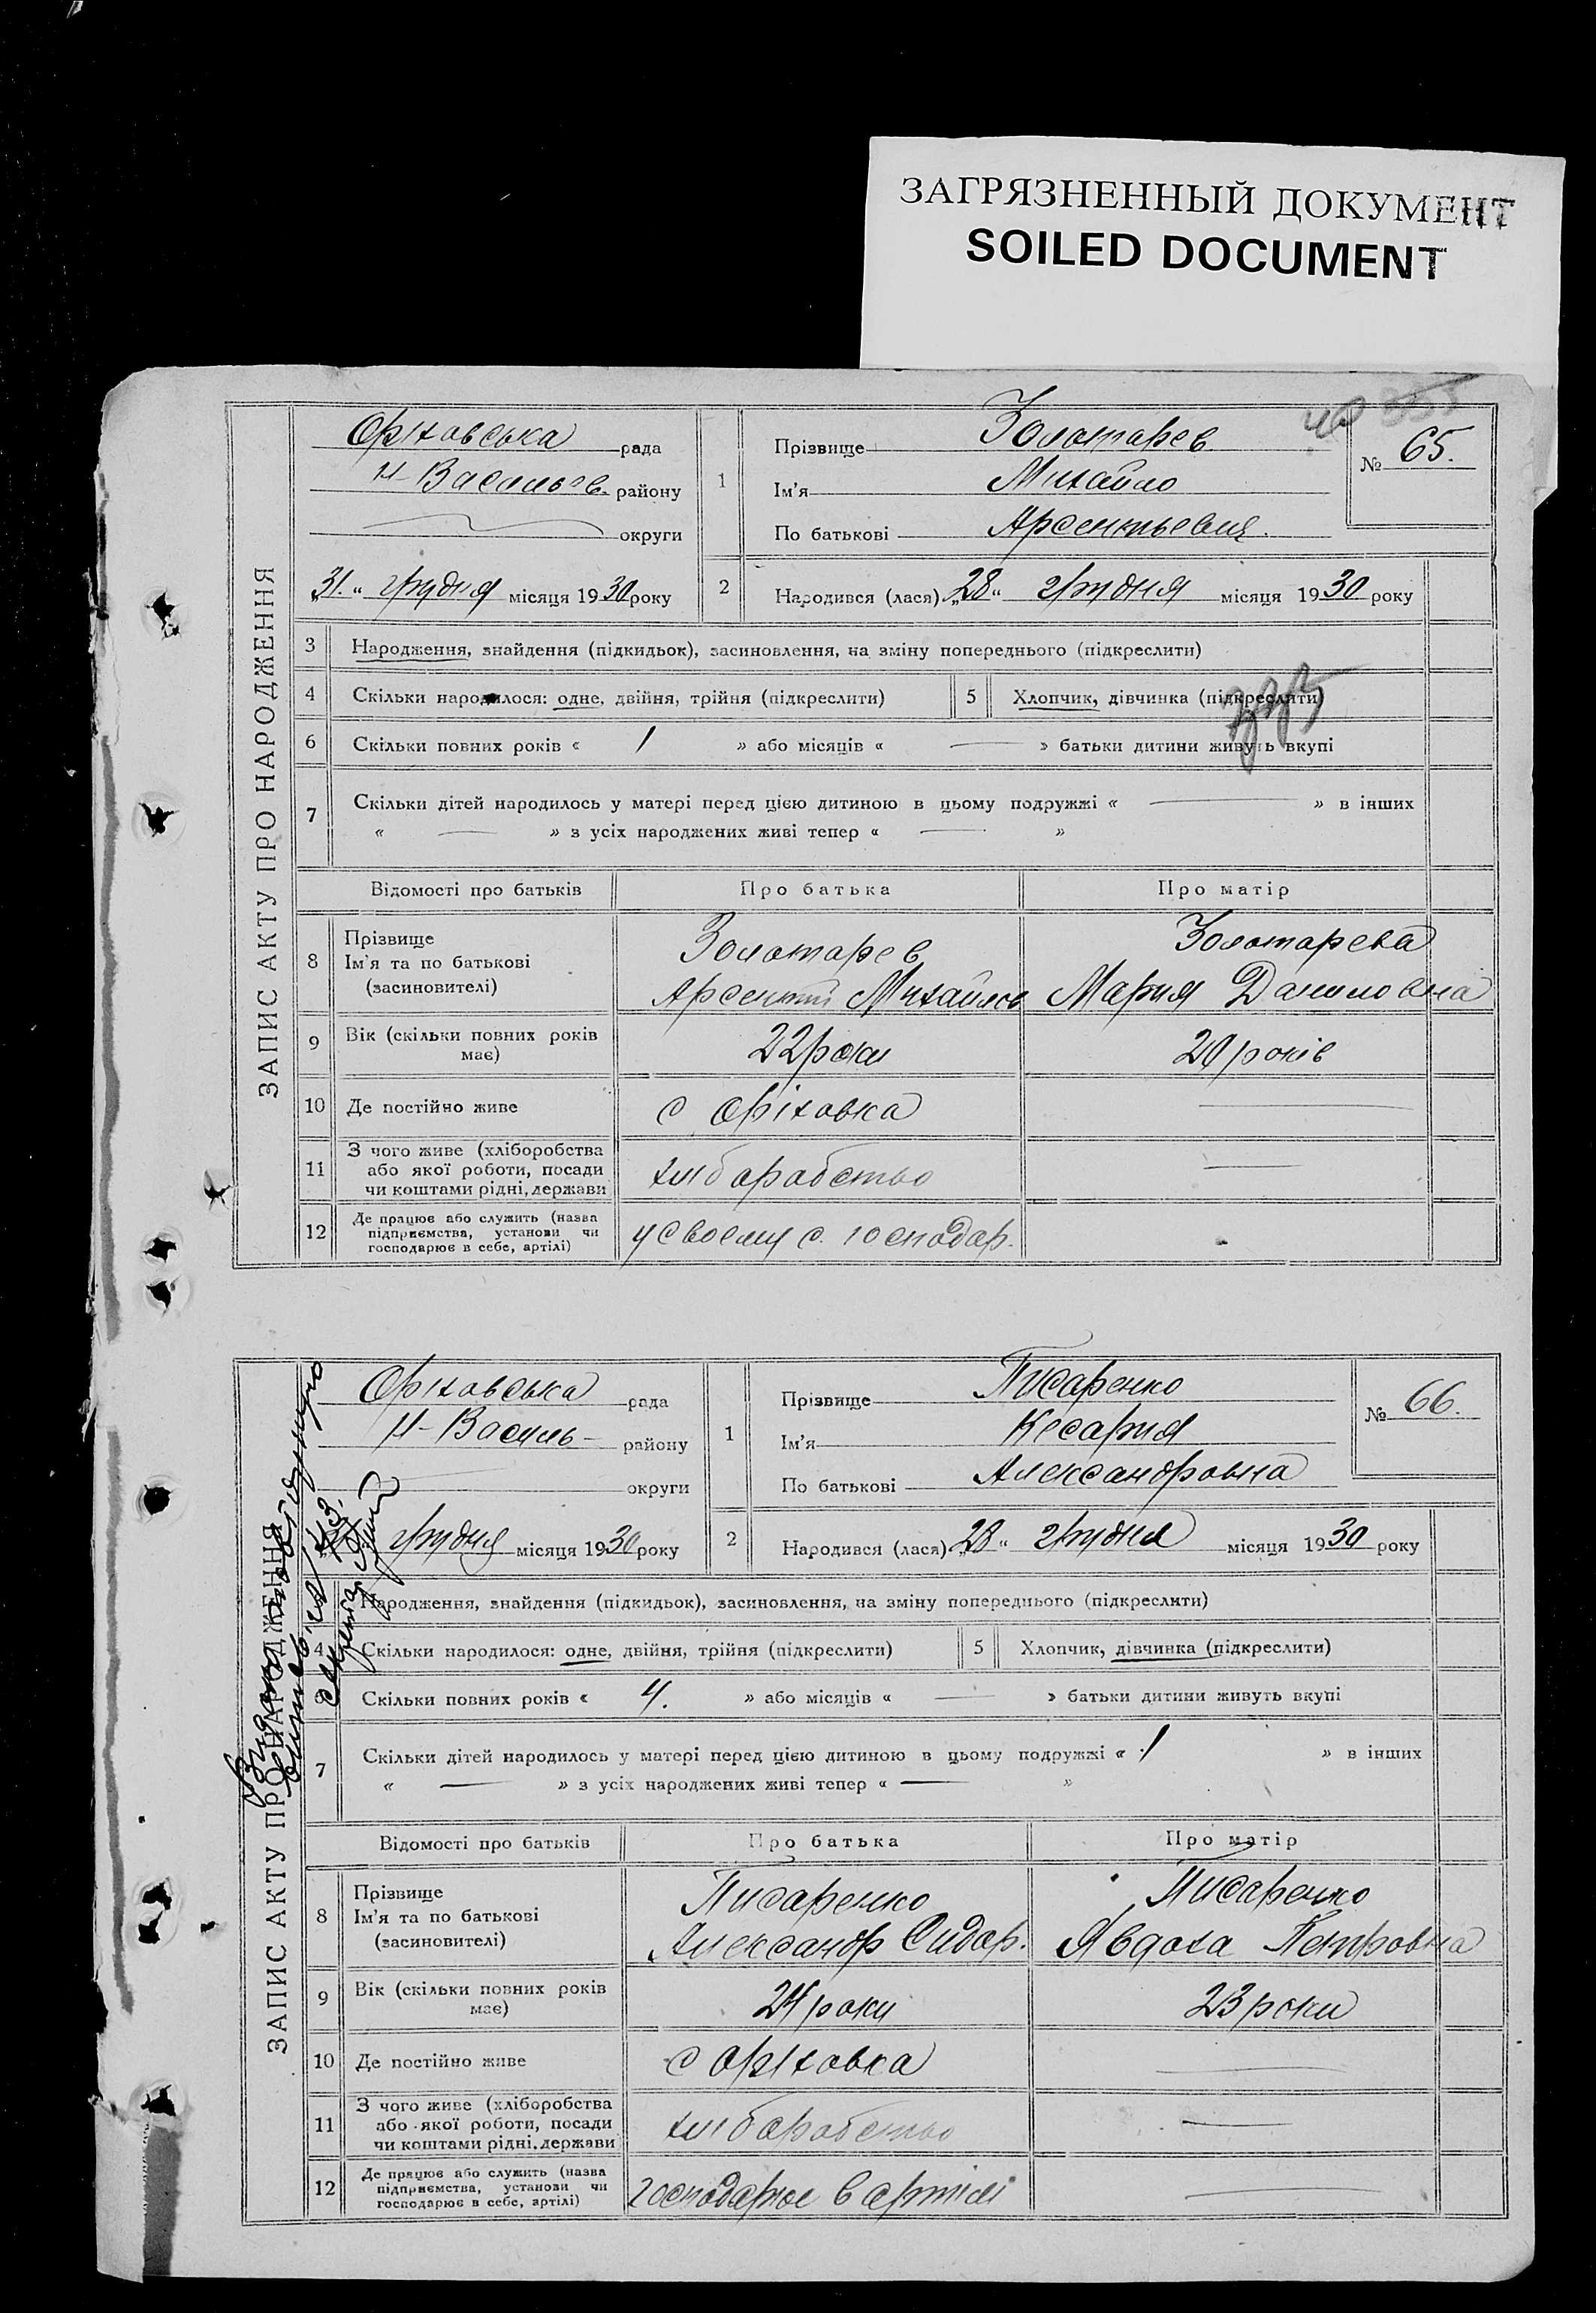 ЗАГРЯЗНЕННЫЙ ДОКУМЕНТ
SOILED DOCUMENT
ЗАПИС АКТУ ПРО НАРОДЖЕННЯ
Оріховська рада
Н-Васильев. району
округи
„31.“ грудня місяця 1930 року
1 Прізвище Золотарев
Ім'я Михайло
По батькові Арсентьевич.
№ 65.
2 Народився (лася) „28“ грудня місяця 1930 року
3 Народження, знайдення (підкидьок), засиновлення, на зміну попереднього (підкреслити)
4 Скільки народилося: одне, двійня, трійня (підкреслити) 5 Хлопчик, дівчинка (підкреслити)
6 Скільки повних років « 1 » або місяців « — » батьки дитини живуть вкупі
7 Скільки дітей народилось у матері перед цією дитиною в цьому подружжі « — » в інших
« — » з усіх народжених живі тепер « — »
Відомості про батьків Про батька Про матір
8 Прізвище Золотарев Золотарева
Ім'я та по батькові
(засновителі) Арсентій Михайлов Мария Даниловна
9 Вік (скільки повних років має) 22 роки 20 років
10 Де постійно живе с Оріховка —
11 З чого живе (хліборобства
або якої роботи, посади
чи коштами рідні, держави хліборобство —
12 Де працює або служить (назва
підприємства, установи чи
господарює в себе, артілі) у своему с. господар.
ЗАПИС АКТУ ПРО НАРОДЖЕННЯ
Оріховська рада
Н-Василь- району
округи
грудня місяця 1930 року
1 Прізвище Писаренко
Ім'я Кесария
По батькові Александровна
№ 66.
2 Народився (лася) „28“ грудня місяця 1930 року
Народження, знайдення (підкидьок), засиновлення, на зміну попереднього (підкреслити)
4 Скільки народилося: одне, двійня, трійня (підкреслити) 5 Хлопчик, дівчинка (підкреслити)
6 Скільки повних років « 4. » або місяців « — » батьки дитини живуть вкупі
7 Скільки дітей народилось у матері перед цією дитиною в цьому подружжі « 1 » в інших
« — » з усіх народжених живі тепер « — »
Відомості про батьків Про батька Про матір
8 Прізвище Писаренко Писаренко
Ім'я та по батькові
(засиновителі) Александр Сидор. Явдоха Петровна
9 Вік (скільки повних років має) 24 роки 23 роки
10 Де постійно живе с Оріховка —
11 З чого живе (хліборобства
або якої роботи, посади
чи коштами рідні, держави хліборобство —
12 Де працює або служить (назва
підприємства, установи чи
господарює в себе, артілі) господарює в артілі —